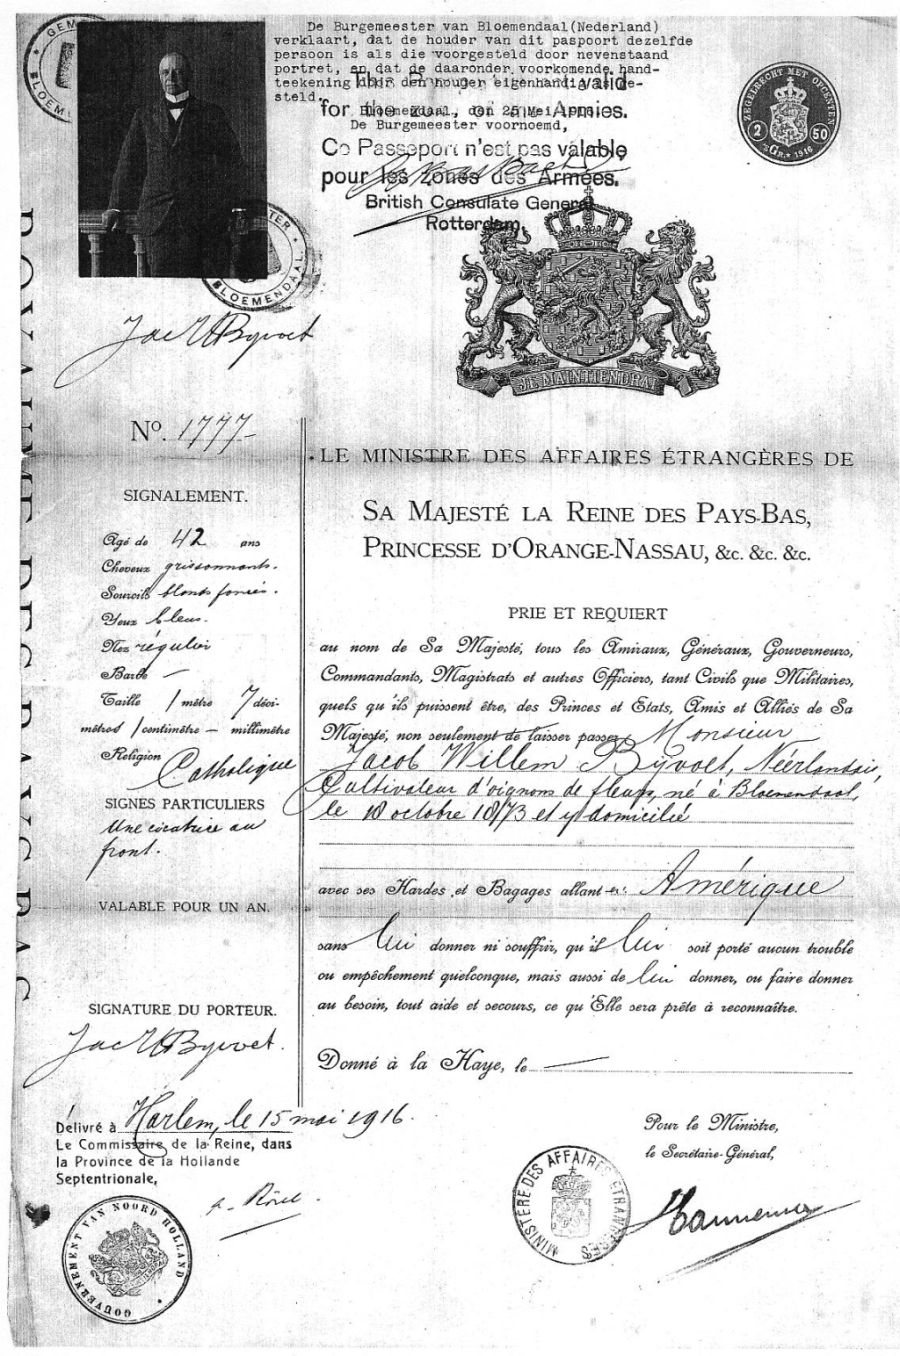 De Burgemeester van Bloemendaal(Nederland)
verklaart, dat de houder van dit paspoort dezelfde
persoon is als die voorgesteld door nevenstaand
portret, en dat de daaronder voorkomende hand-
teekening door den houder eigenhandig is ge-
steld.
Bloemendaal, den 25 Mei
De Burgemeester voornoemd,
valid
for the zone of the Armies.
Ce Passeport n'est pas valable
pour les zones des Armées.
British Consulate General
Rotterdam.
BLOEMENDAAL
ZEGELRECHT MET OPCENTEN
2 50
Gr. 1916
JE MAINTIENDRAI
Jac W Byvoet
ROYAUME DES PAYS-BAS
No. 1777
SIGNALEMENT.
Agé de 42 ans
Cheveux grissonnants.
Sourcils blonds foncés.
Yeux bleus.
Nez régulier
Barbe —
Taille 1 mètre 7 déci-
mètres 1 centimètre — millimètre
Religion Catholique
SIGNES PARTICULIERS
Une cicatrice au
front.
VALABLE POUR UN AN.
SIGNATURE DU PORTEUR.
Jac W Byvoet.
LE MINISTRE DES AFFAIRES ÉTRANGÈRES DE
SA MAJESTÉ LA REINE DES PAYS-BAS,
PRINCESSE D'ORANGE-NASSAU, &c. &c. &c.
PRIE ET REQUIERT
au nom de Sa Majesté, tous les Amiraux, Généraux, Gouverneurs,
Commandants, Magistrats et autres Officiers, tant Civils que Militaires,
quels qu'ils puissent être, des Princes et Etats, Amis et Alliés de Sa
Majesté, non seulement de laisser passer Monsieur
Jacob Willem Byvoet, Néerlandais,
Cultivateur d'oignons de fleurs, né à Bloemendaal,
le 18 octobre 1873 et y domicilié
avec ses Hardes et Bagages allant en Amérique
sans lui donner ni souffrir, qu'il lui soit porté aucun trouble
ou empêchement quelconque, mais aussi de lui donner, ou faire donner
au besoin, tout aide et secours, ce qu'Elle sera prête à reconnaître.
Donné à la Haye, le —
Délivré à Harlem, le 15 mai 1916.
Le Commissaire de la Reine, dans
la Province de la Hollande
Septentrionale,
Pour le Ministre,
le Secrétaire-Général,
GOUVERNEMENT VAN NOORD HOLLAND
MINISTÈRE DES AFFAIRES ETRANGÈRES
Hannema